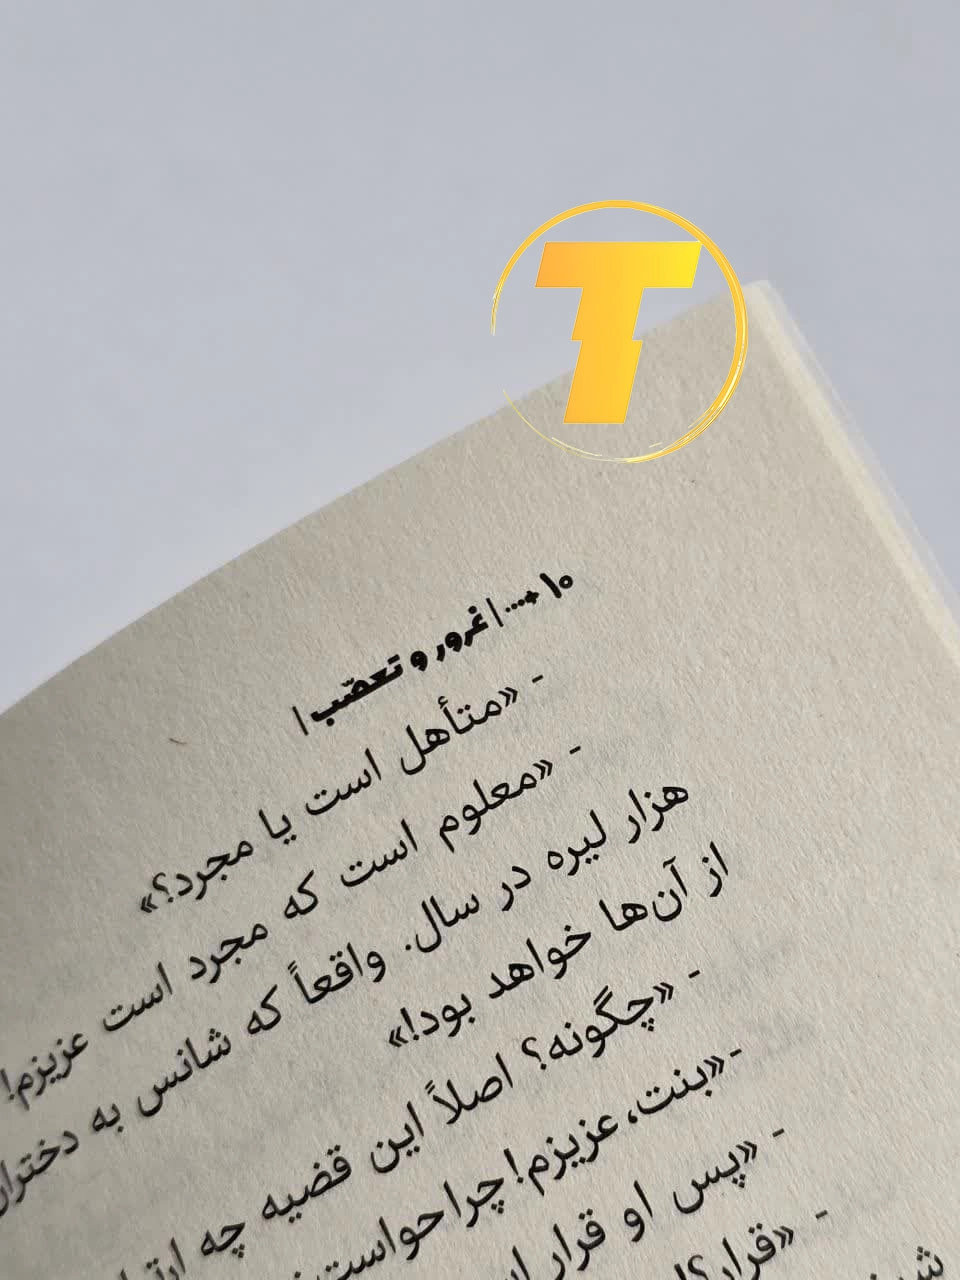 T
۱۰ ... | غرور و تعصّب |
- «متأهل است یا مجرد؟»
- «معلوم است که مجرد است عزیزم!
هزار لیره در سال. واقعاً که شانس به دختران
از آن‌ها خواهد بود!»
- «چگونه؟ اصلاً این قضیه چه
- «بنت، عزیزم! چرا حواست
- «پس او قرار
- «قرار؟!